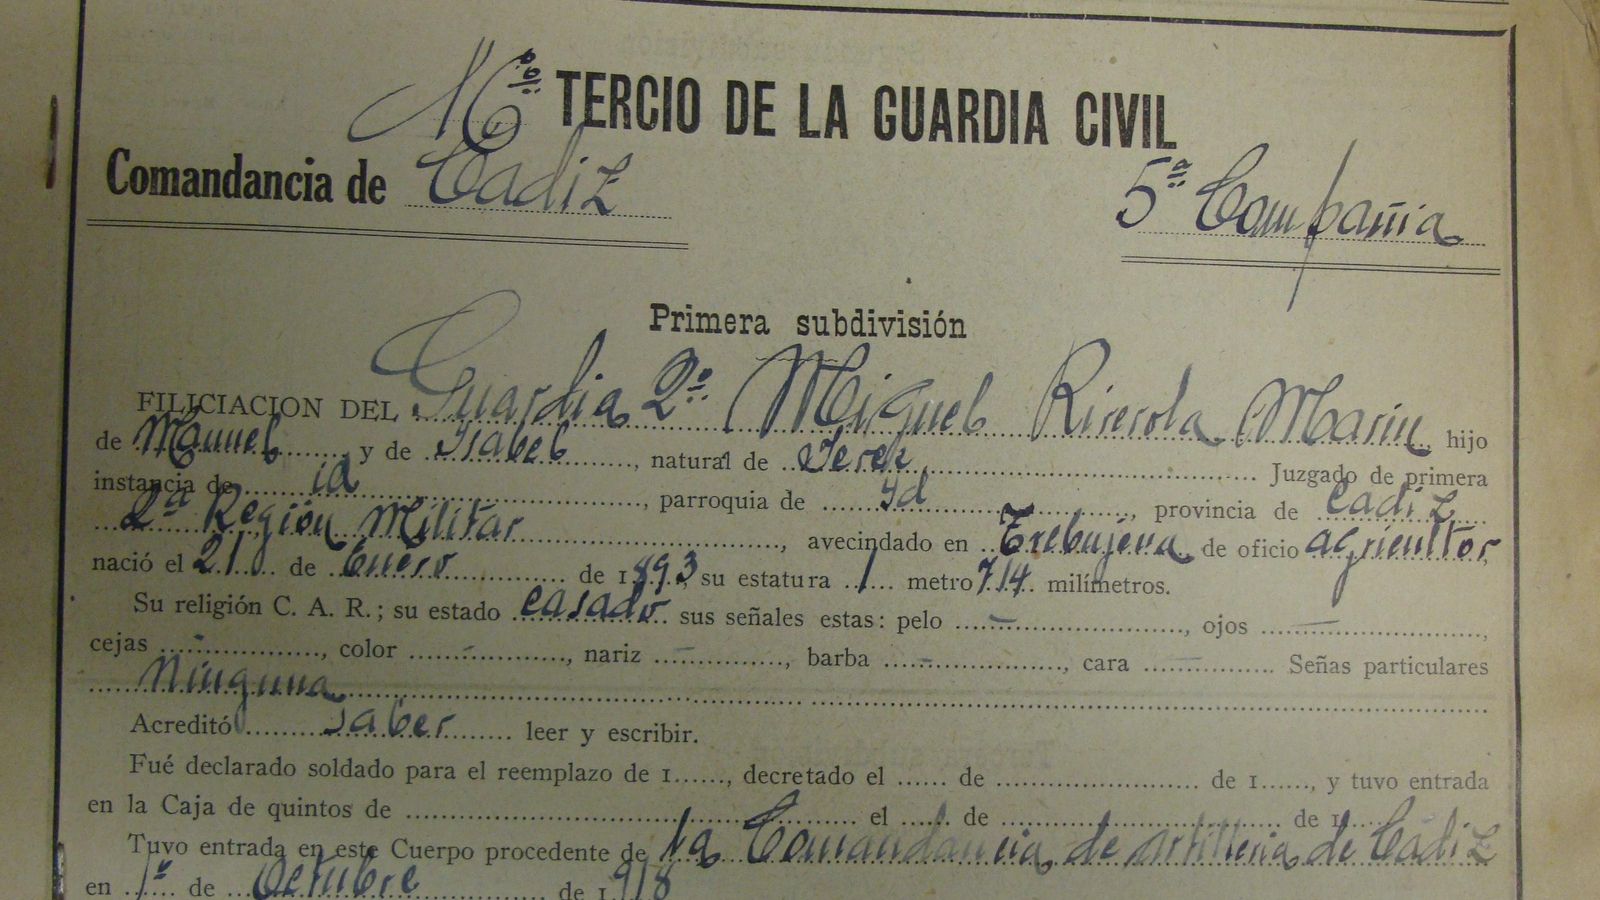 16º TERCIO DE LA GUARDIA CIVIL
Comandancia de Cadiz
5ª Compañia
Primera subdivisión
FILICIACION DEL Guardia 2º Miguel Riverola Marin, hijo
de Manuel y de Isabel, natural de Jerez Juzgado de primera
instancia de id, parroquia de Yd, provincia de Cadiz
2ª Región Militar, avecindado en Trebujena de oficio agricultor,
nació el 21 de Enero de 1893, su estatura 1 metro 714 milímetros.
Su religión C. A. R.; su estado Casado sus señales estas: pelo –, ojos –,
cejas –, color –, nariz –, barba –, cara – Señas particulares
Ninguna
Acreditó saber leer y escribir.
Fué declarado soldado para el reemplazo de 1......, decretado el ...... de ........................ de 1......, y tuvo entrada
en la Caja de quintos de ........................ el ...... de ........................ de 1......
Tuvo entrada en este Cuerpo procedente de la Comandancia de Artilleria de Cádiz
en 1º de Octubre de 1918